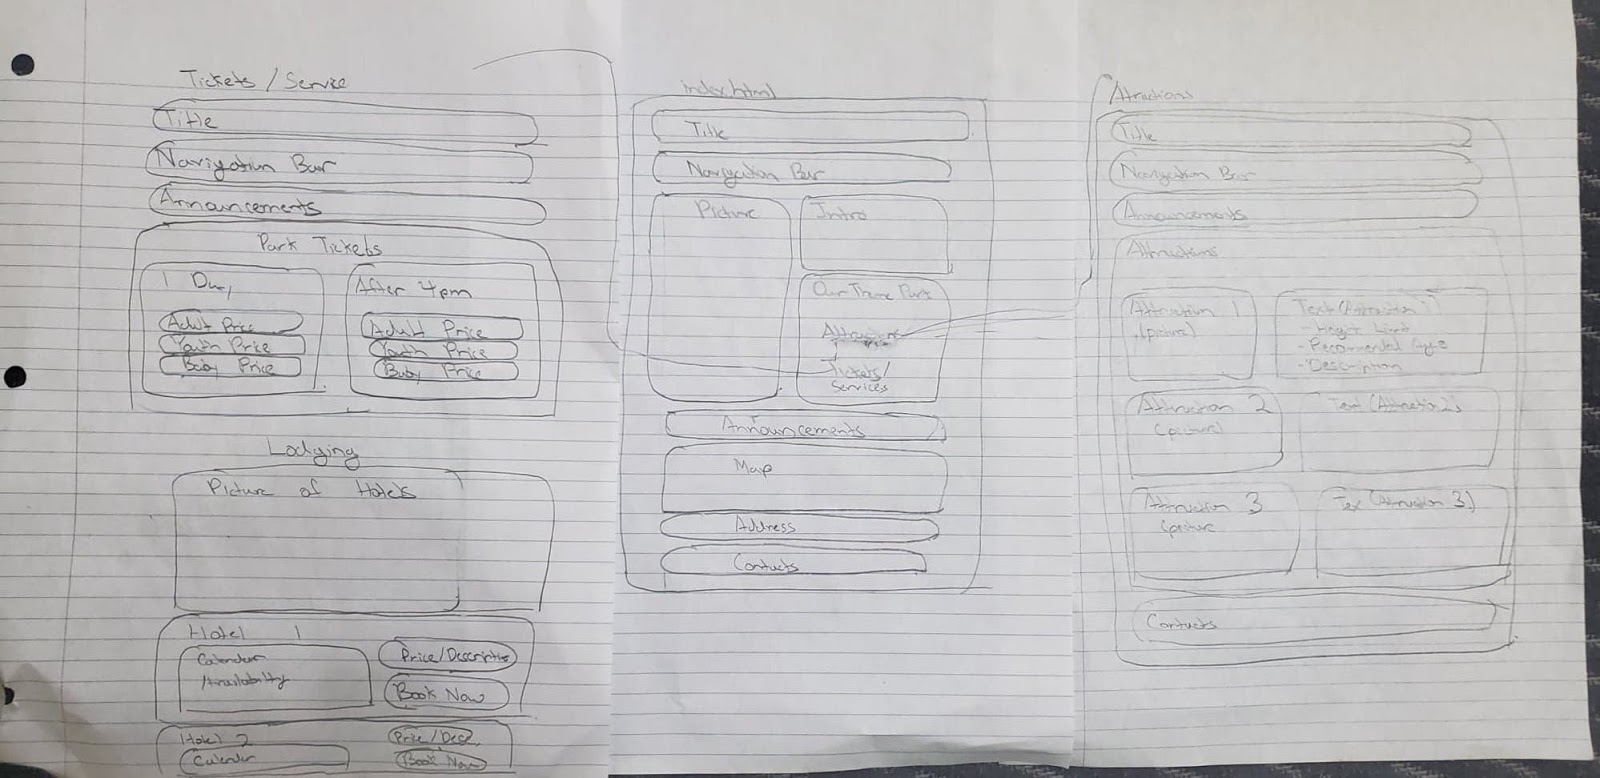 Tickets / Service
Title
Navigation Bar
Announcements
Park Tickets
1 Day
Adult Price
Youth Price
Baby Price
After 4pm
Adult Price
Youth Price
Baby Price
Lodging
Picture of Hotels
Hotel 1
Calender
/Availability
Price/Description
Book Now
Hotel 2
Calender
Price/Desc.
Book Now
index.html
Title
Navigation Bar
Picture
Intro
Our Theme Park
Attractions
Tickets/
Services
Announcements
Map
Address
Contacts
Attractions
Title
Navigation Bar
Announcements
Attractions
Attraction 1
(picture)
Text (Attraction 1)
- Height Limit
- Recommended Age
- Description
Attraction 2
(picture)
Text (Attraction 2)
Attraction 3
(picture
Text (Attraction 3)
Contacts